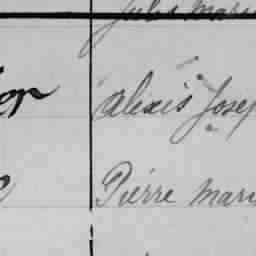 Jules Mari
Alexis Josep
Pierre Mari